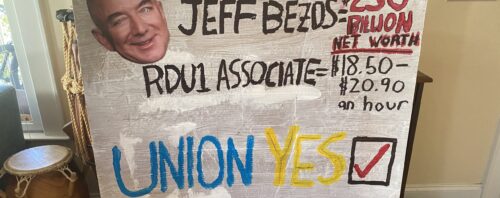 JEFF BEZOS= $230
BILLION
NET WORTH
RDU1 ASSOCIATE= $18.50-
$20.90
an hour
UNION YES